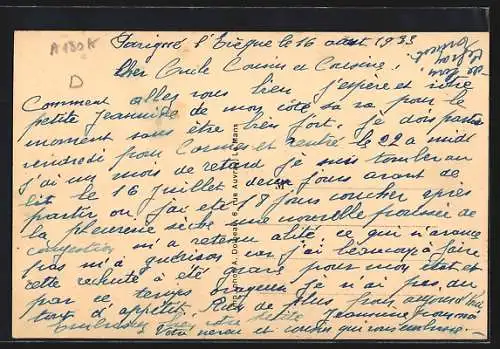 A 180 A
D
Parigné l'Evêque le 16 août 1933
Cher Oncle Cousin et Cousine,
Comment allez vous bien j'espère et votre
petite Jeannine de mon côté sa va pour le
moment sans être bien fort, je dois partir
vendredi pour et rentré le 22 a midi
j'ai un mois de retard je suis tomber au
lit le 16 juillet deux jours avant de
partir ou j'ai été 18 jours coucher après
la pleuresie sèche une nouvelle poussée de
congestion m'a retenu alité ce qui n'avance
pas m'a guérison car j'ai beaucoup à faire
cette rechute à été grave pour mon état et
par ce temps je n'ai pas du
tout d'appetit. Rien de plus pour aujourd'hui
bien votre petite Jeannine pour moi
Votre neveu et cousin qui vous embrasse.
A. Dolbeau, 6, rue Auvray, Le Mans